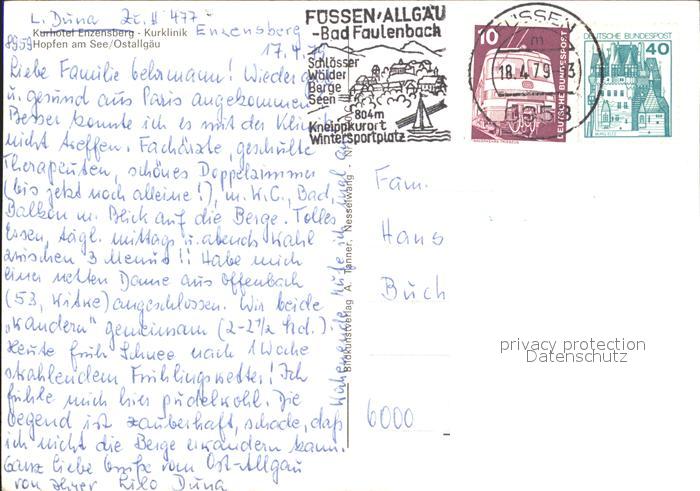 L. Duna Zi. # 477
Enzensberg
Kurhotel Enzensberg - Kurklinik
8959 Hopfen am See/Ostallgäu
17.4.79
Liebe Familie
! Wieder gut
u. gesund aus Paris angekommen.
Besser konnte ich es mit der Klinik
nicht treffen. Fachärzte, geschulte
Therapeuten, schönes Doppelzimmer
(bis jetzt noch alleine!), m. W.C., Bad,
Balkon m. Blick auf die Berge. Tolles
Essen, tägl. mittags u. abends Wahl
zwischen 3 Menüs!! Habe mich
einer netten Dame aus Offenbach
(53, Witwe) angeschlossen. Wir beide
„wandern" gemeinsam (2-2½ Std.).
Heute früh Schnee nach 1 Woche
strahlendem Frühlingswetter! Ich
fühle mich hier pudelwohl. Die
Gegend ist zauberhaft, schade, daß
ich nicht die Berge erwandern kann.
Ganz liebe Grüße vom Ost-Allgäu
von Ihrer Lilo Duna
Bildkunstverlag A. Tanner, Nesselwang
FÜSSEN/ALLGÄU
-Bad Faulenbach
Schlösser
Wälder
Berge
Seen
804m
Kneippkurort
Wintersportplatz
FÜSSEN
m
18.4.79
8958
10
DEUTSCHE BUNDESPOST
DEUTSCHE BUNDESPOST
40
BURG ELTZ
Fam.
Hans
Buch
6000
privacy protection
Datenschutz